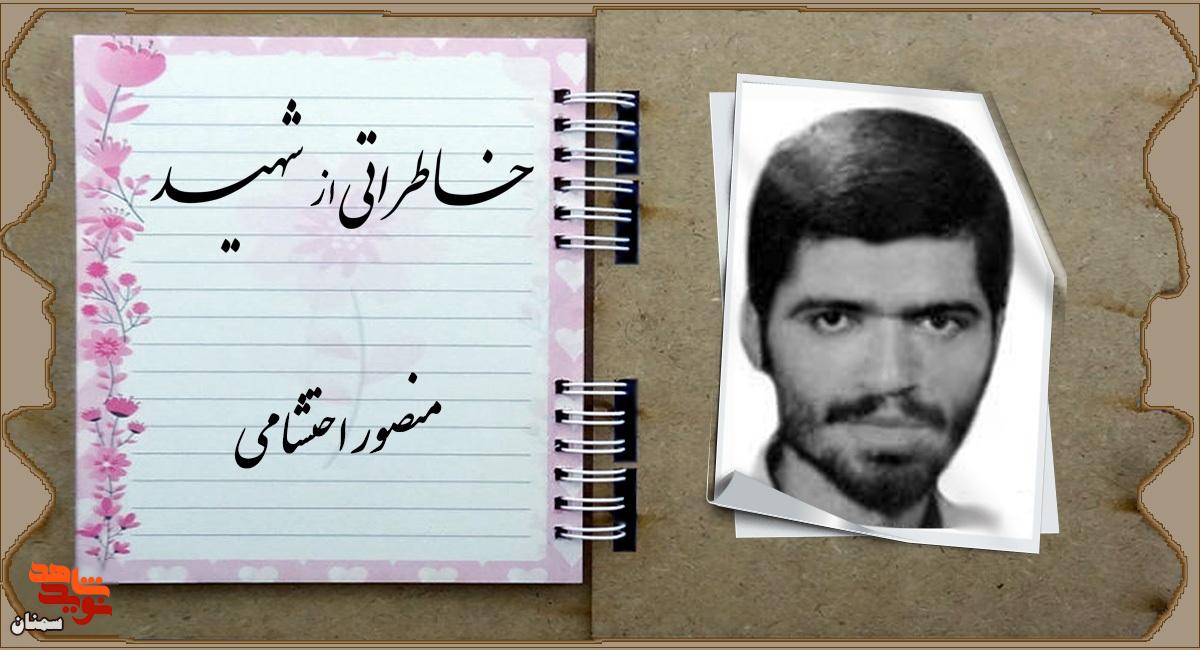 خاطراتی از شهید
منصور احتشامی
نوید شاهد
سمنان